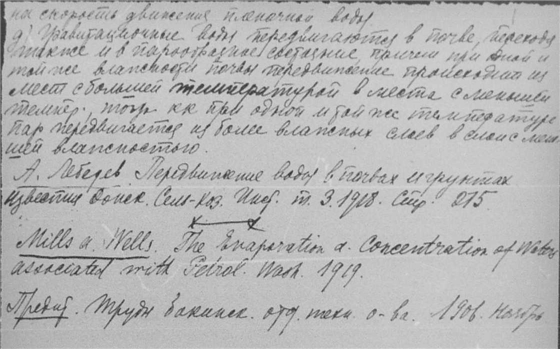 на скорость движения пленочной воды
д) Гравитационные воды передвигаются в почве, переходя
также и в парообразное состояние, причем при одной и
той же влажности почвы передвижение происходит из
мест с большей температурой в места с меньшей
темпер. тогда кк при одной и той же температуре
пар передвигается из более влажных слоев в слои с мень
шей влажностью.
А. Лебедев Передвижение воды в почвах и грунтах
Известия Донск. Сель-хоз. Инст. т. 3. 1918. Стр. 215
Mills a. Wells. The Evaporation a. Concentration of Waters
associated with Petrol. Wash. 1919.
Труды Бакинск. отд. техн. о-ва. 1906. Ноябрь